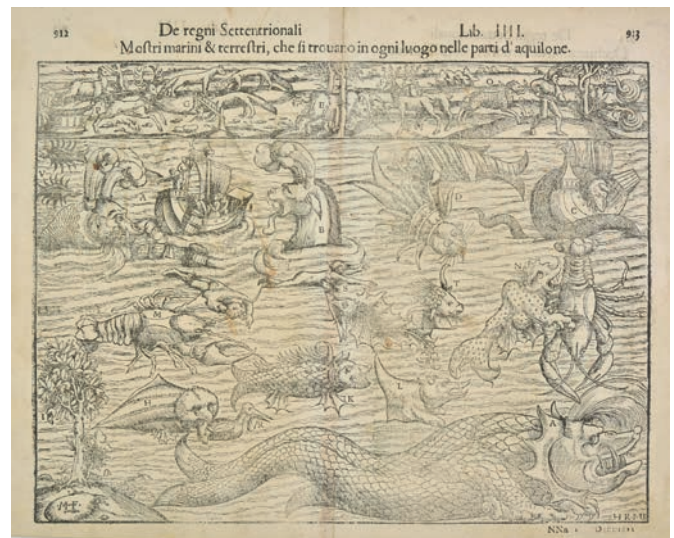 912 De regni Settentrionali Lib. IIII. 913
Moſtri marini & terreſtri, che ſi trouano in ogni luogo nelle parti d'aquilone.
G
O
V
A
B
D
C
M
T
N
I
K
L
H
A
HRMD
NNa